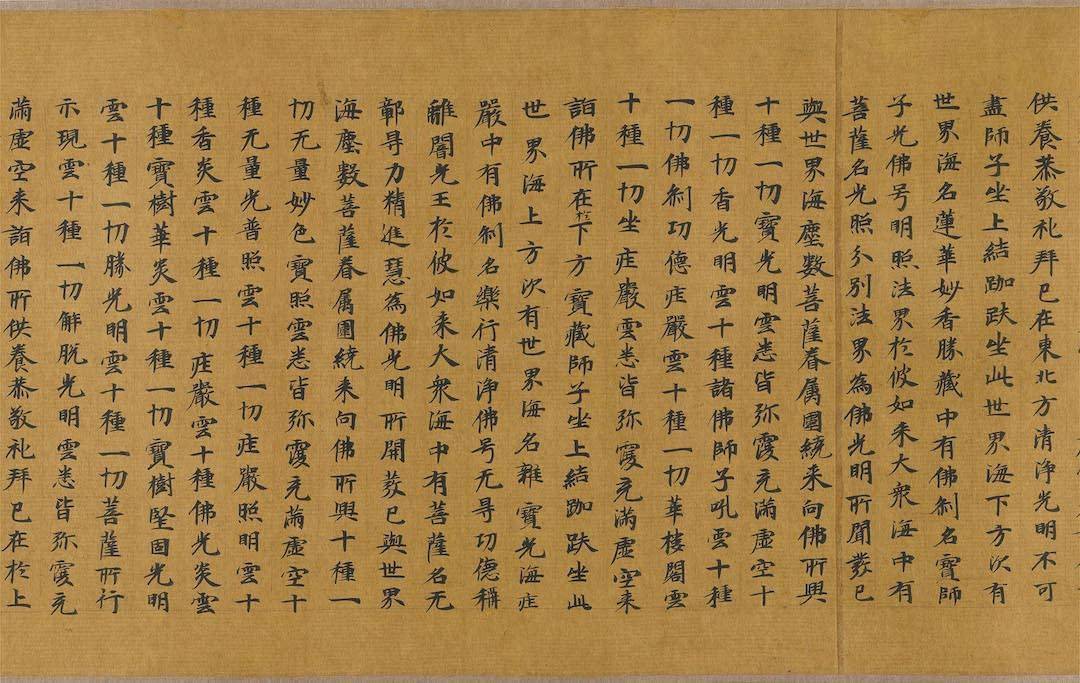 供養恭敬礼拜已在東北方清浄光明不可
盡師子坐上結跏趺坐此世界海下方次有
世界海名蓮華妙香勝藏中有佛刹名寶師
子光佛号明照法界於彼如来大衆海中有
菩薩名光照分別法界為佛光明所開發已
與世界海塵數菩薩眷属圍繞来向佛所興
十種一切寶光明雲悉皆弥覆充滿虚空十
種一切香光明雲十種諸佛師子吼雲十種
一切佛刹功德庄嚴雲十種一切華樓閣雲
十種一切坐庄嚴雲悉皆弥覆充滿虚空来
詣佛所在於下方寶藏師子坐上結跏趺坐此
世界海上方次有世界海名雜寶光海庄
嚴中有佛刹名樂行清浄佛号无㝵功德稱
離闇光王於彼如来大衆海中有菩薩名无
鄣㝵力精進慧為佛光明所開發已與世界
海塵數菩薩眷属圍繞来向佛所興十種一
切无量妙色寶照雲悉皆弥覆充滿虚空十
種无量光普照雲十種一切庄嚴照明雲十
種香炎雲十種一切庄嚴雲十種佛光炎雲
十種寶樹華炎雲十種一切寶樹堅固光明
雲十種一切勝光明雲十種一切菩薩所行
示現雲十種一切解脱光明雲悉皆弥覆充
滿虚空来詣佛所供養恭敬礼拜已在於上